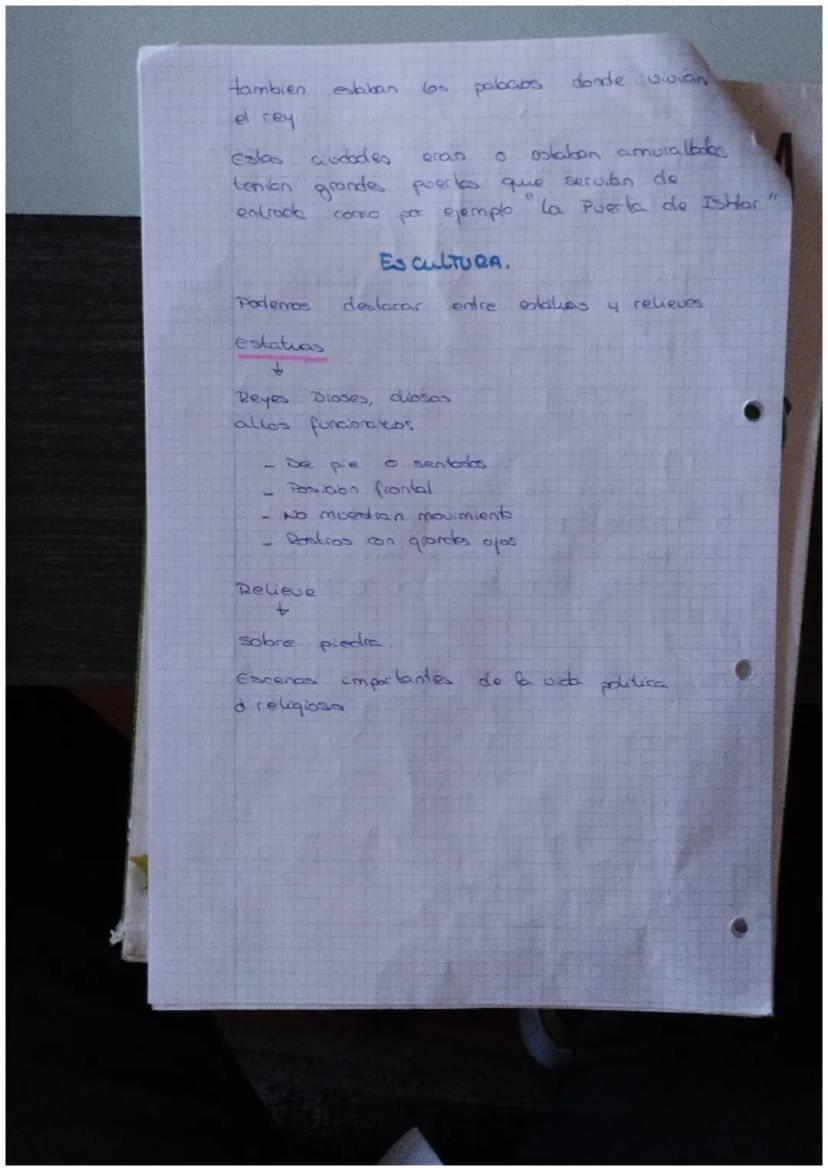 tambien estaban los palacios donde vivian
el rey
Estas ciudades eran o estaban amuralladas
tenian grandes puertas que servian de
entrada como por ejemplo "La Puerta de Ishtar"
ESCULTURA.
Podemos destacar entre estatuas y relieves
estatuas
↓
Reyes Dioses, diosas
altos funcionarios
- De pie o sentados
- Posicion frontal
- No muestran movimiento
- Rostros con grandes ojos
Relieve
↓
sobre piedra.
Escenas importantes de la vida politica
o religiosa